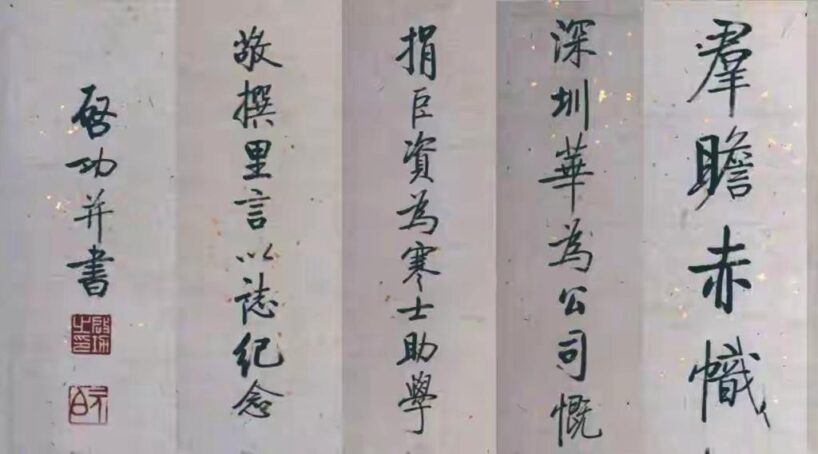 羣瞻赤幟
深圳華為公司慨
捐巨資為寒士助學
敬撰里言以誌紀念
啓功并書
啟功之印